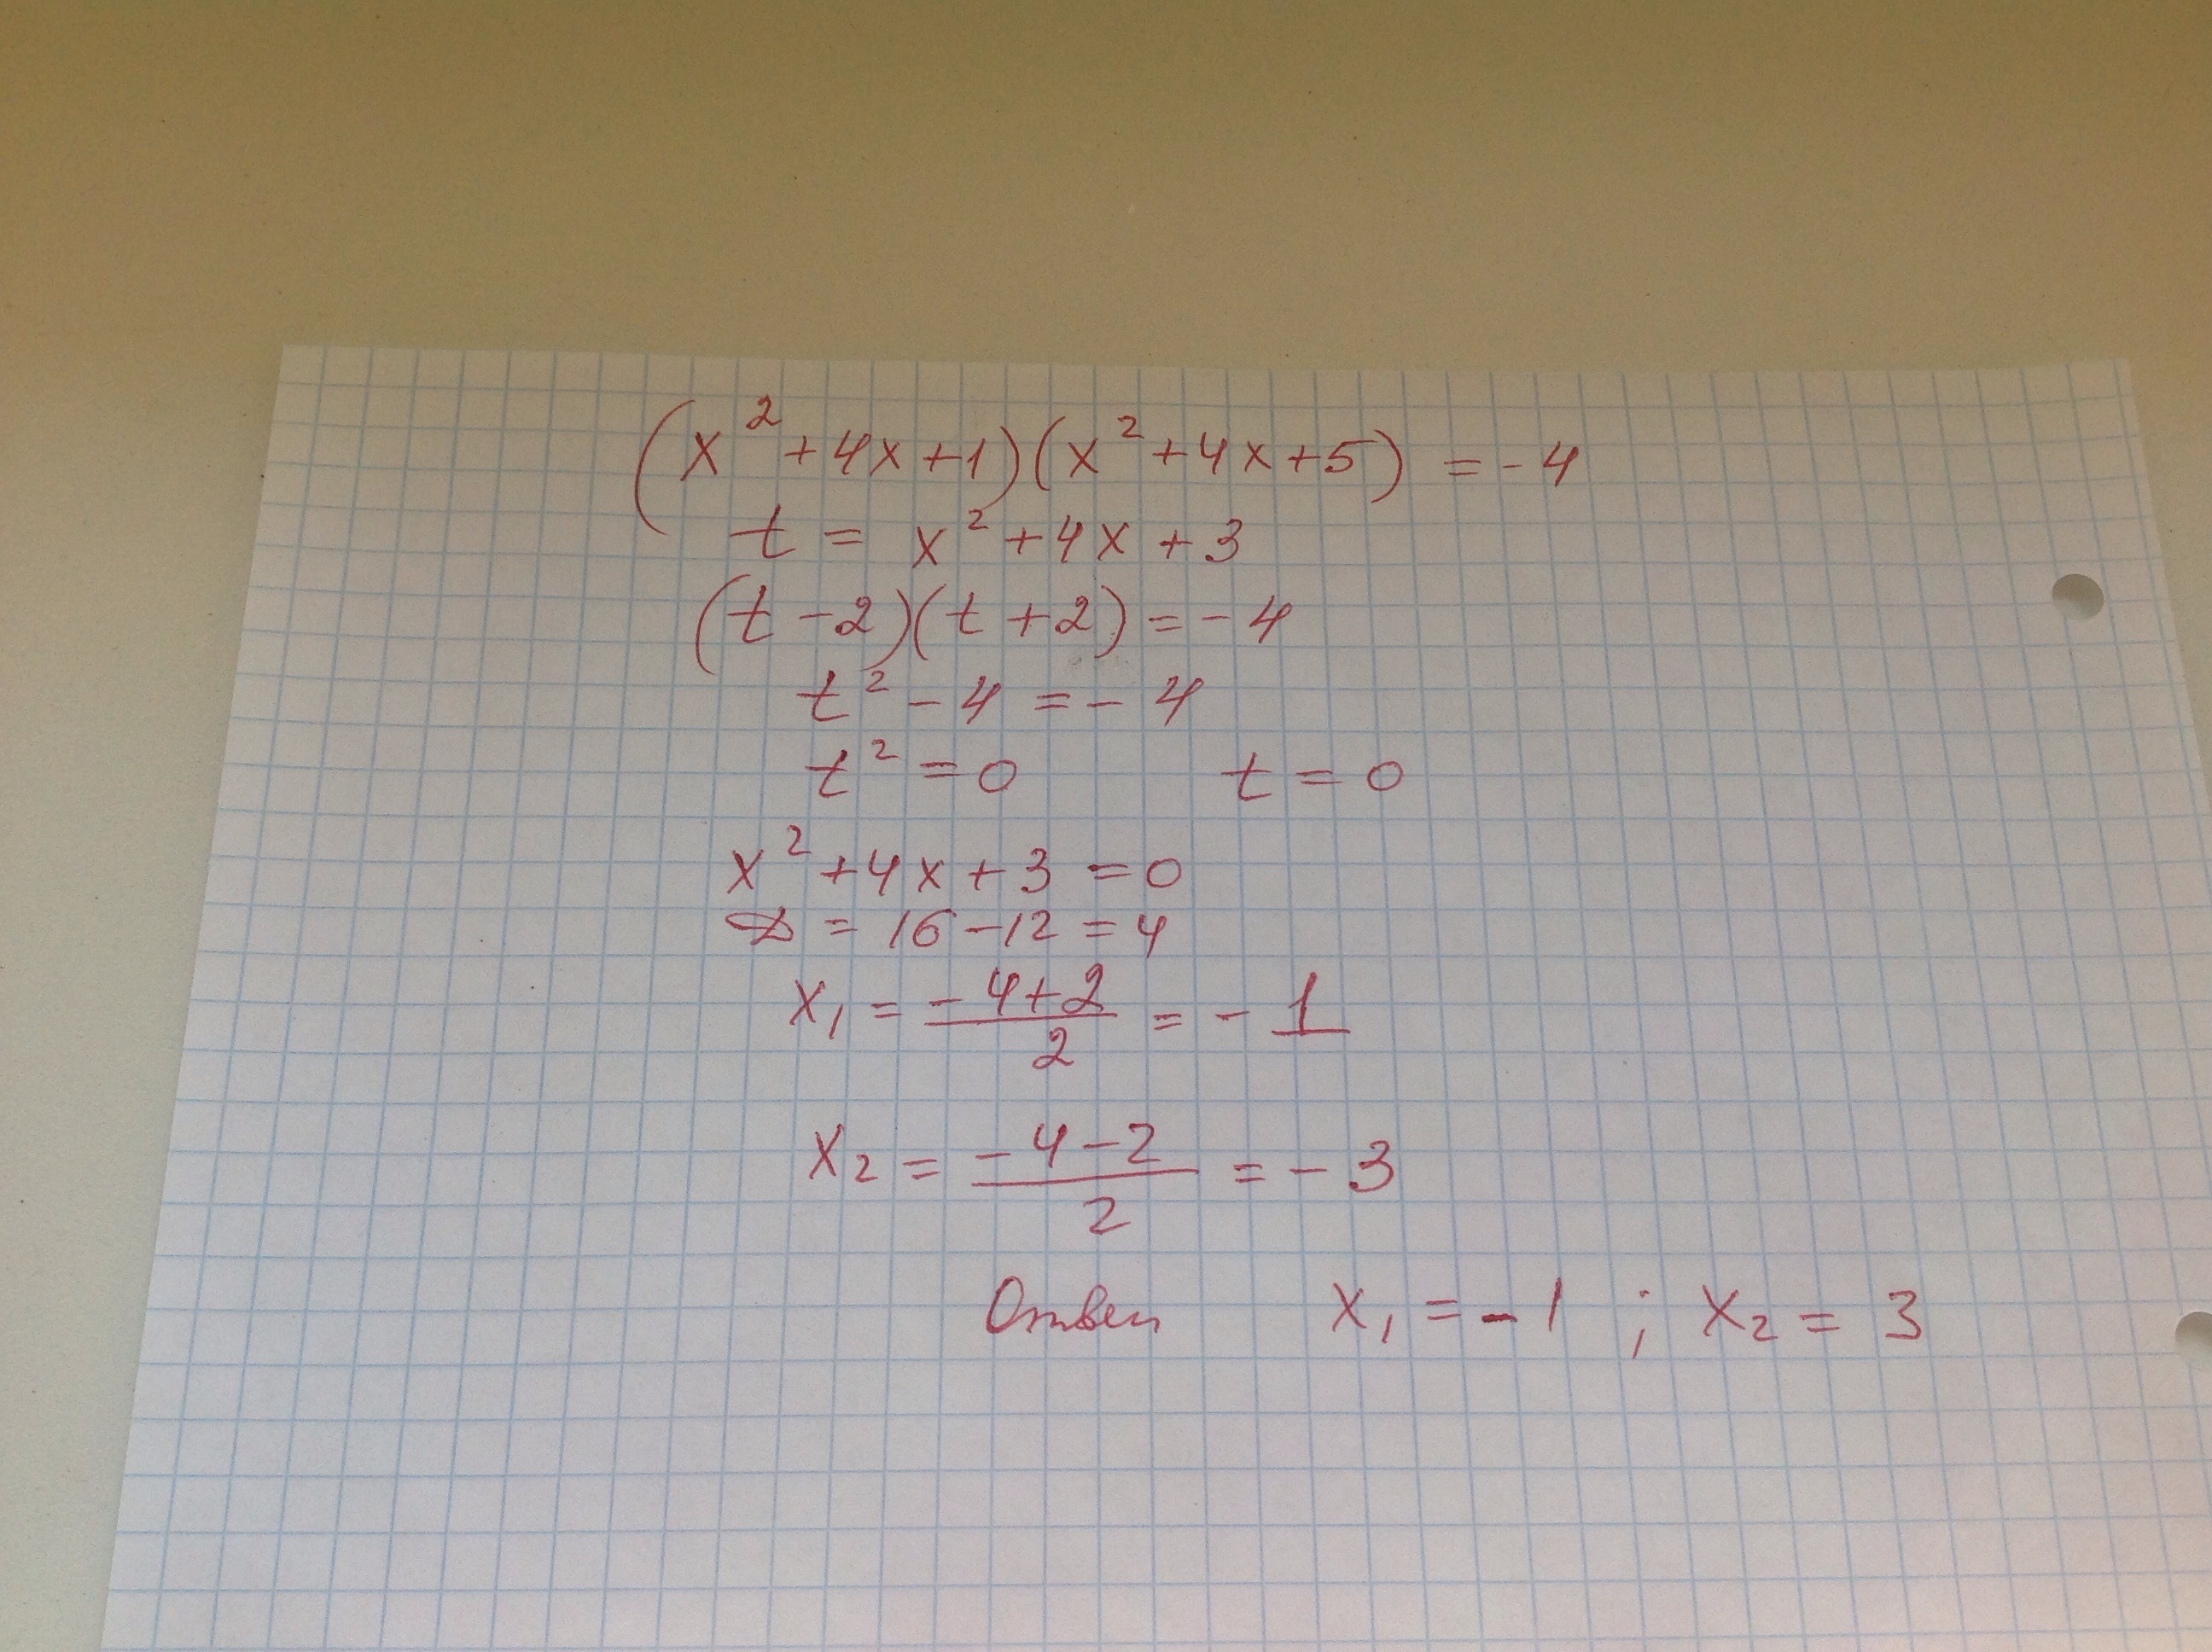 (x² + 4x + 1)(x² + 4x + 5) = -4
t = x² + 4x + 3
(t - 2)(t + 2) = -4
t² - 4 = -4
t² = 0 t = 0
x² + 4x + 3 = 0
D = 16 - 12 = 4
x₁ = (-4+2)/2 = -1
x₂ = (-4-2)/2 = -3
Ответ x₁ = -1 ; x₂ = 3